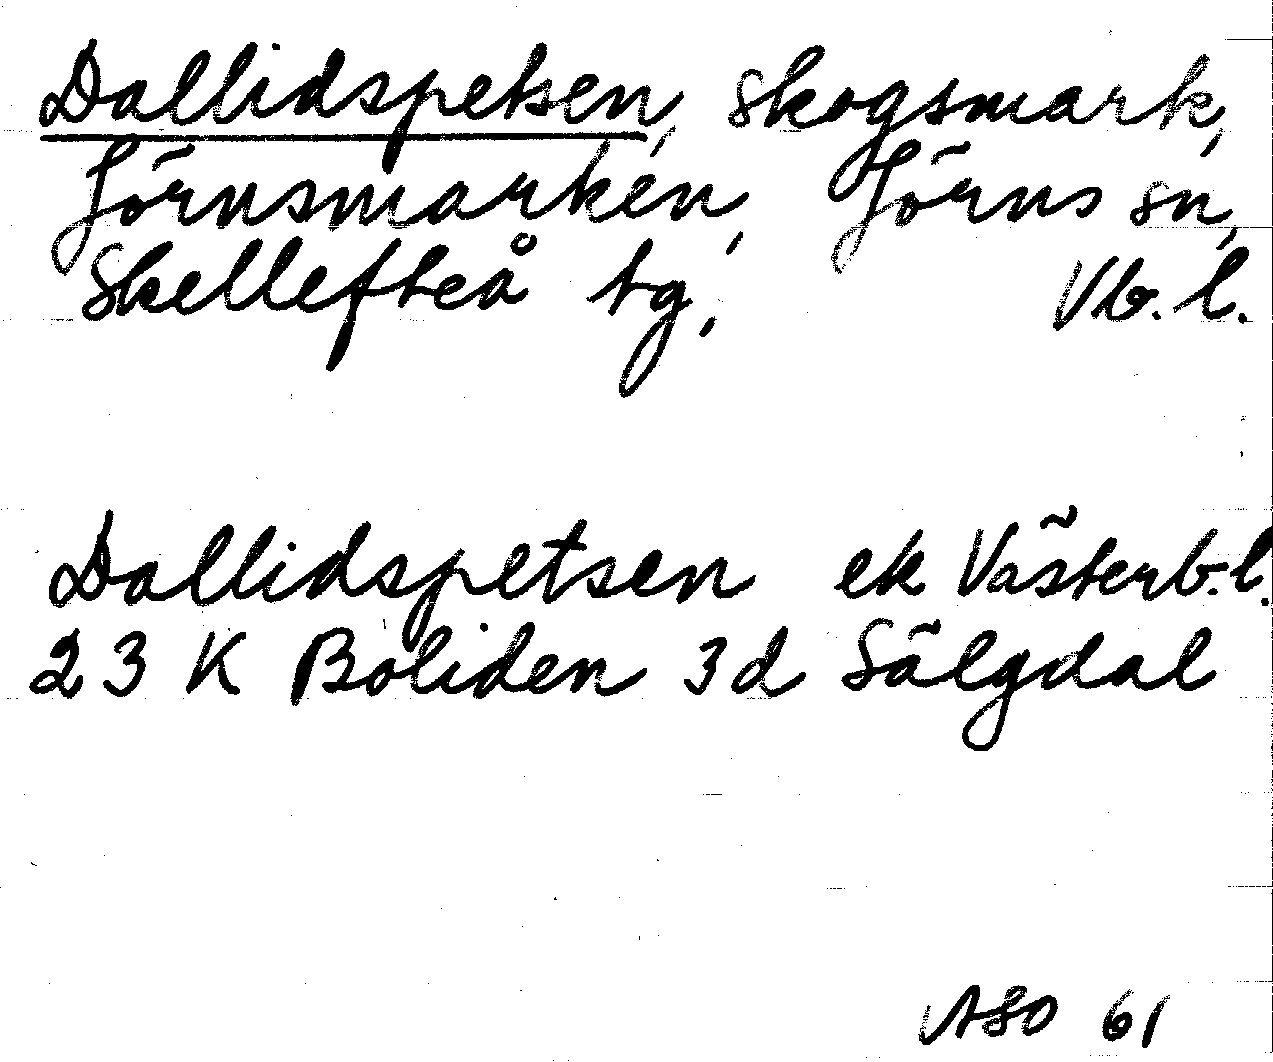 Dallidspetsen, skogsmark,
Jörnsmarken, Jörns sn,
Skellefteå tg, Vb. l.
Dallidspetsen ek Västerb. l.
23 K Boliden 3d Sälgdal
ASO 61